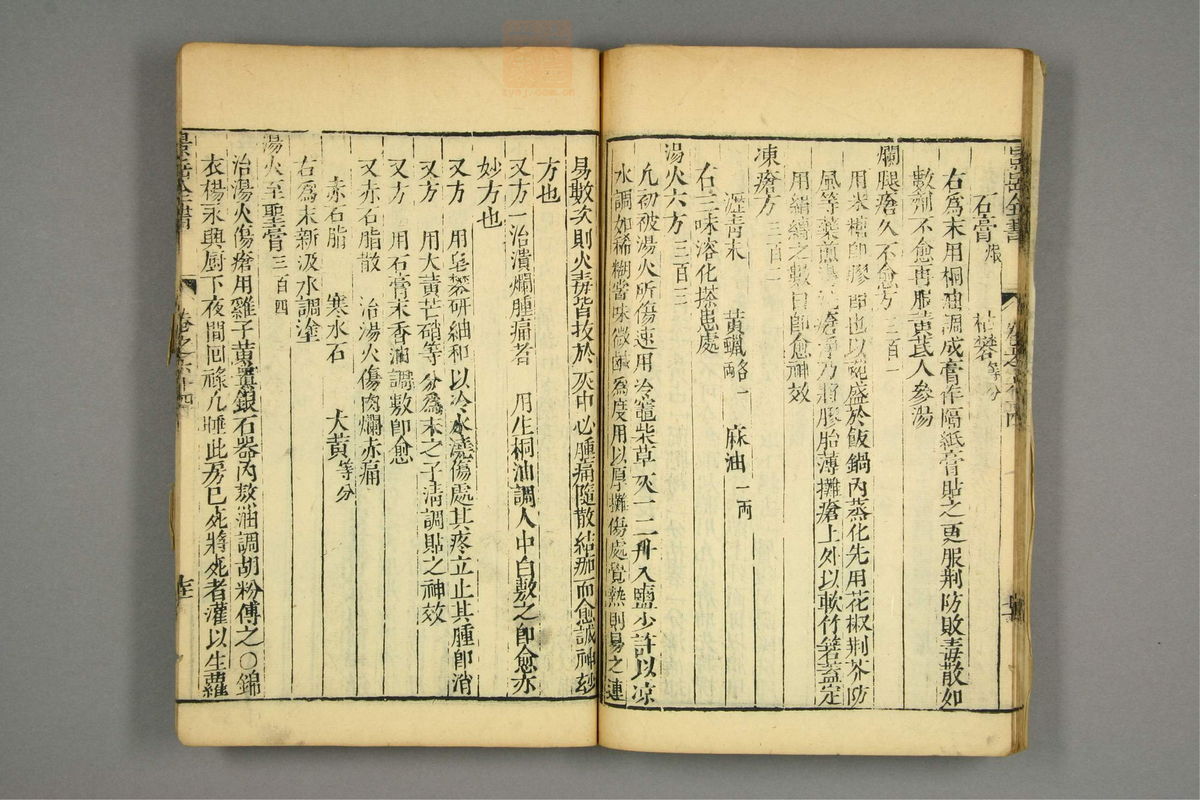 石膏煅 枯礬等分
右爲末用桐油調成膏作隔紙膏貼之更服荆防敗毒散如
數劑不愈再服黄芪人參湯
爛腿瘡久不愈方三百一
用 膠 也以碗盛於飯鍋内蒸化先用花椒荆芥防
風等藥煎湯 瘡淨乃將膠胎薄攤瘡上外以軟竹箬葢定
用絹縛之數日即愈神效
凍瘡方三百二
瀝青末 黄蠟各一兩 麻油一兩
右三味溶化搽患處
湯火六方三百三
凡初被湯火所傷速用冷竈柴草灰一二升入鹽少許以凉
水調如稀糊嘗味微鹹爲度用以厚攤傷處覺熱則易之連
易數次則火毒皆拔於灰中必腫痛隨散結痂而愈誠神玅
方也
又方一治潰爛腫痛者 用生桐油調人中白敷之即愈亦
妙方也
又方 用皂礬研細和以冷水澆傷處其疼立止其腫即消
又方 用大黄芒硝等分爲末之子清調貼之神效
又方 用石膏末香油調敷即愈
又赤石脂散 治湯火傷肉爛赤痛
赤石脂 寒水石 大黄等分
右爲末新汲水調塗
湯火至聖膏三百四
治湯火傷瘡用雞子黄置銀石器内熬油調胡粉傅之○錦
衣楊永興厨下夜間回祿凡睡此房已死將死者灌以生蘿
景岳全書 卷之六十四